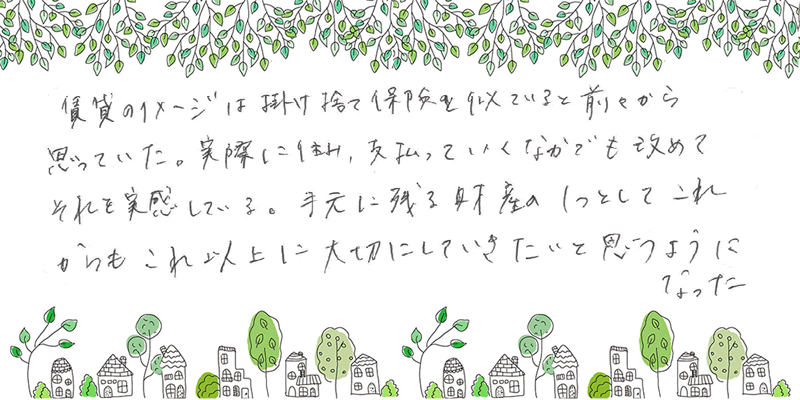 賃貸のイメージは掛け捨て保険を似ていると前々から
思っていた。実際に住み、支払っていくなかでも改めて
それを実感している。手元に残る財産の1つとしてこれ
からもこれ以上に大切にしていきたいと思うように
なった